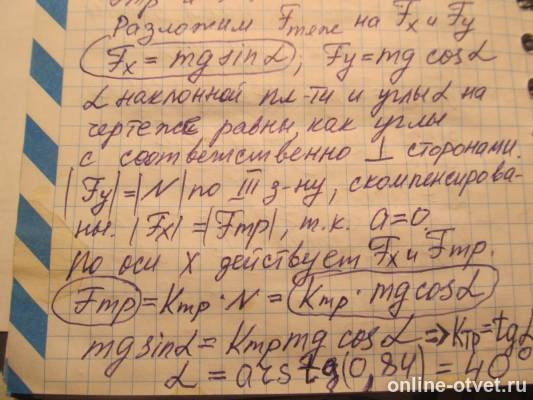 Разложим Fтяж на Fx и Fy
Fx = mg sin α; Fy = mg cos α
α наклонной пл-ти и углы α на
чертеже равны, как углы
с соответственно ⊥ сторонами.
|Fy|=|N| по III з-ну, скомпенсирова-
ны. |Fx|=|Fтр|, т.к. a=0
По оси X действует Fx и Fтр.
Fтр = Kтр · N = Kтр · mg cos α
mg sin α = Kтр mg cos α ⇒ Kтр = tg α
α = arctg(0,84) = 40°
online-otvet.ru